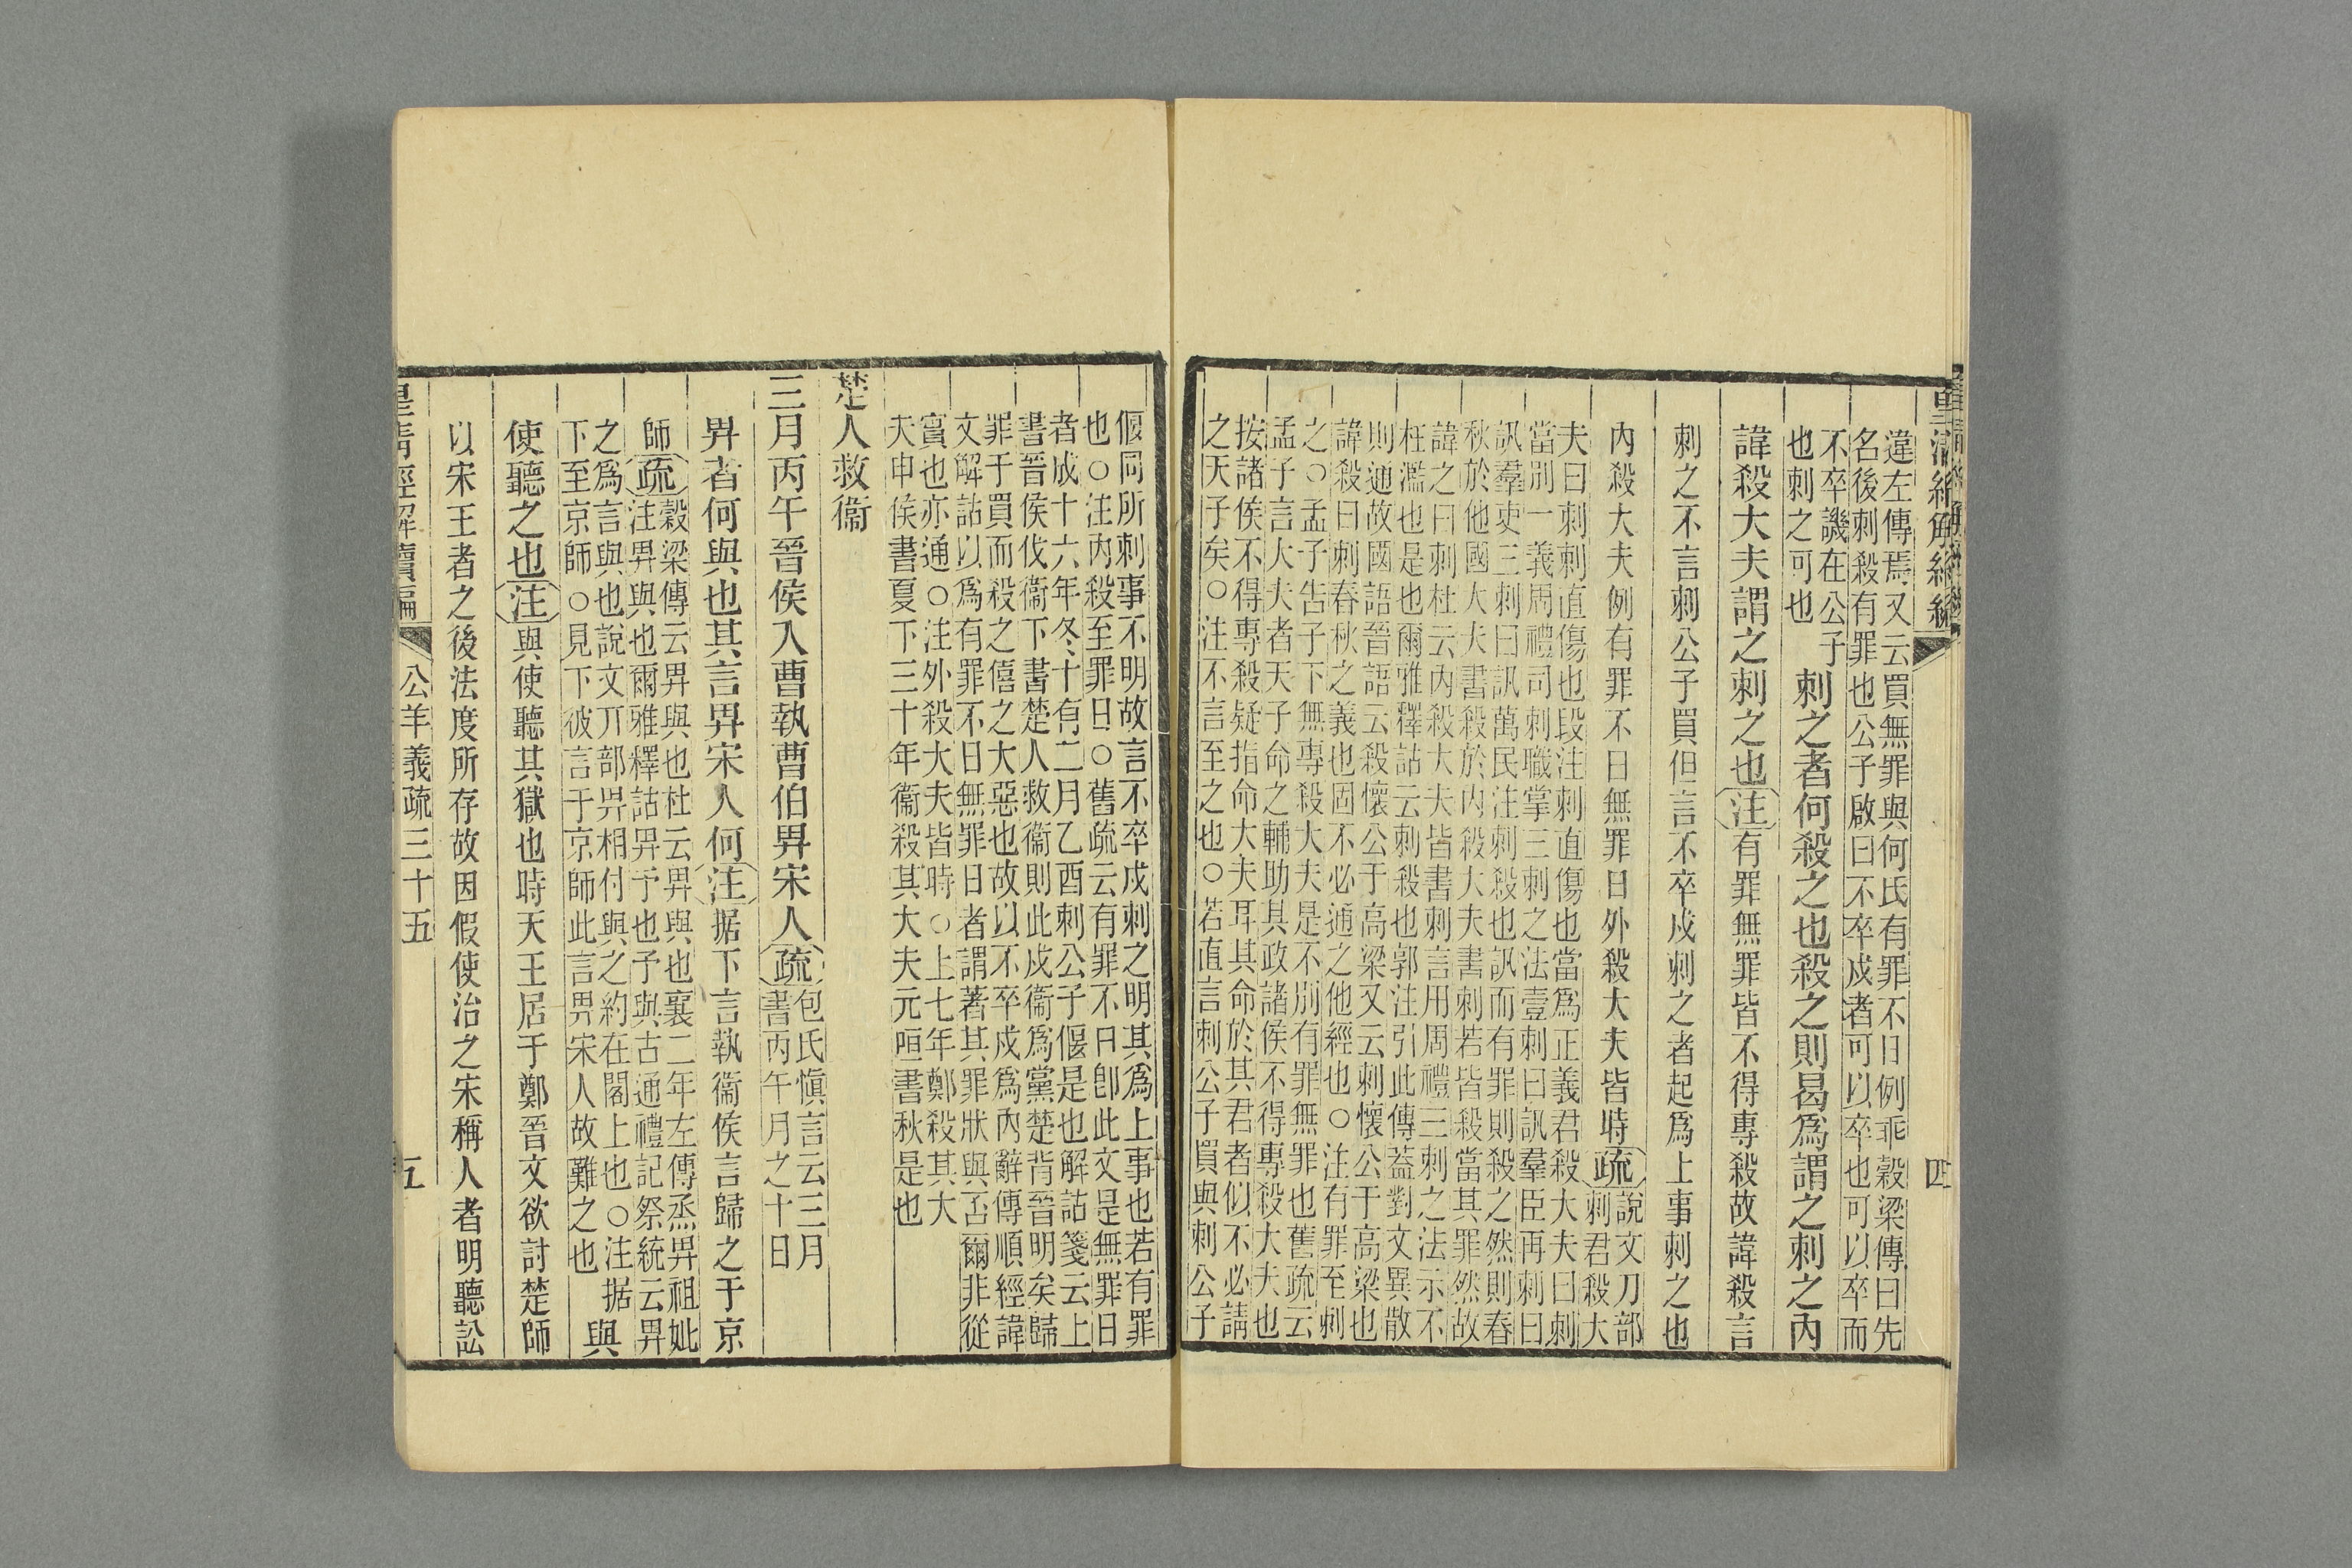 皇清經解續編
四
違左傳焉又云買無罪與何氏有罪不日例乖穀梁傳曰先
名後刺殺有罪也公子啟曰不卒戍者可以卒也可以卒而
不卒譏在公子
也刺之可也
刺之者何殺之也殺之則曷爲謂之刺之內
諱殺大夫謂之刺之也注有罪無罪皆不得專殺故諱殺言
刺之不言刺公子買但言不卒戍刺之者起爲上事刺之也
內殺大夫例有罪不日無罪日外殺大夫皆時疏
說文刀部
刺君殺大
夫曰刺刺直傷也段注刺直傷也當爲正義君殺大夫曰刺
當別一義周禮司刺職掌三刺之法壹刺曰訊羣臣再刺曰
訊羣吏三刺曰訊萬民注刺殺也訊而有罪則殺之然則春
秋於他國大夫書殺於內殺大夫書刺若皆殺當其罪然故
諱之曰刺杜云內殺大夫皆書刺言用周禮三刺之法示不
枉濫也是也爾雅釋詁云刺殺也郭注引此傳蓋對文異散
則通故國語晉語云殺懷公于高梁又云刺懷公于高梁也
諱殺曰刺春秋之義也固不必通之他經也○注有罪至刺
之○孟子告子下無專殺大夫是不別有罪無罪也舊疏云
孟子言大夫者天子命之輔助其政諸侯不得專殺大夫也
按諸侯不得專殺疑指命大夫耳其命於其君者似不必請
之天子矣○注不言至之也○若直言刺公子買與刺公子
偃同所刺事不明故言不卒戍刺之明其爲上事也若有罪
也○注內殺至罪日○舊疏云有罪不日卽此文是無罪日
者成十六年冬十有二月乙酉刺公子偃是也解詁箋云上
書晉侯伐衞下書楚人救衞則此戍衞爲黨楚背晉明矣歸
罪于買而殺之僖之大惡也故以不卒戍爲內辭傳順經諱
文解詁以爲有罪不日無罪日者謂著其罪狀與否爾非從
實也亦通○注外殺大夫皆時○上七年鄭殺其大
夫申侯書夏下三十年衞殺其大夫元咺書秋是也
楚人救衞
三月丙午晉侯入曹執曹伯畀宋人疏
包氏愼言云三月
書丙午月之十日
畀者何與也其言畀宋人何注据下言執衞侯言歸之于京
師疏
穀梁傳云畀與也杜云畀與也襄二年左傳烝畀祖妣
注畀與也爾雅釋詁畀予也予與古通禮記祭統云畀
之爲言與也說文丌部畀相付與之約在閣上也○注据
下至京師○見下彼言于京師此言畀宋人故難之也
與
使聽之也注與使聽其獄也時天王居于鄭晉文欲討楚師
以宋王者之後法度所存故因假使治之宋稱人者明聽訟
皇清經解續編
公羊義疏三十五
五